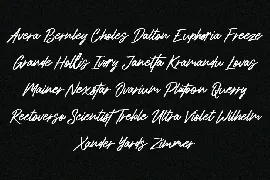 Avera Bernley Choles Dalton Euphoria Freeze
Grande Hollis Ivory Jancitta Kramandu Lovas
Mainer Nexstar Ovarium Platoon Querry
Rectoverso Scientist Treble Ultra Violet Wilhelm
Xander Yards Zimmer